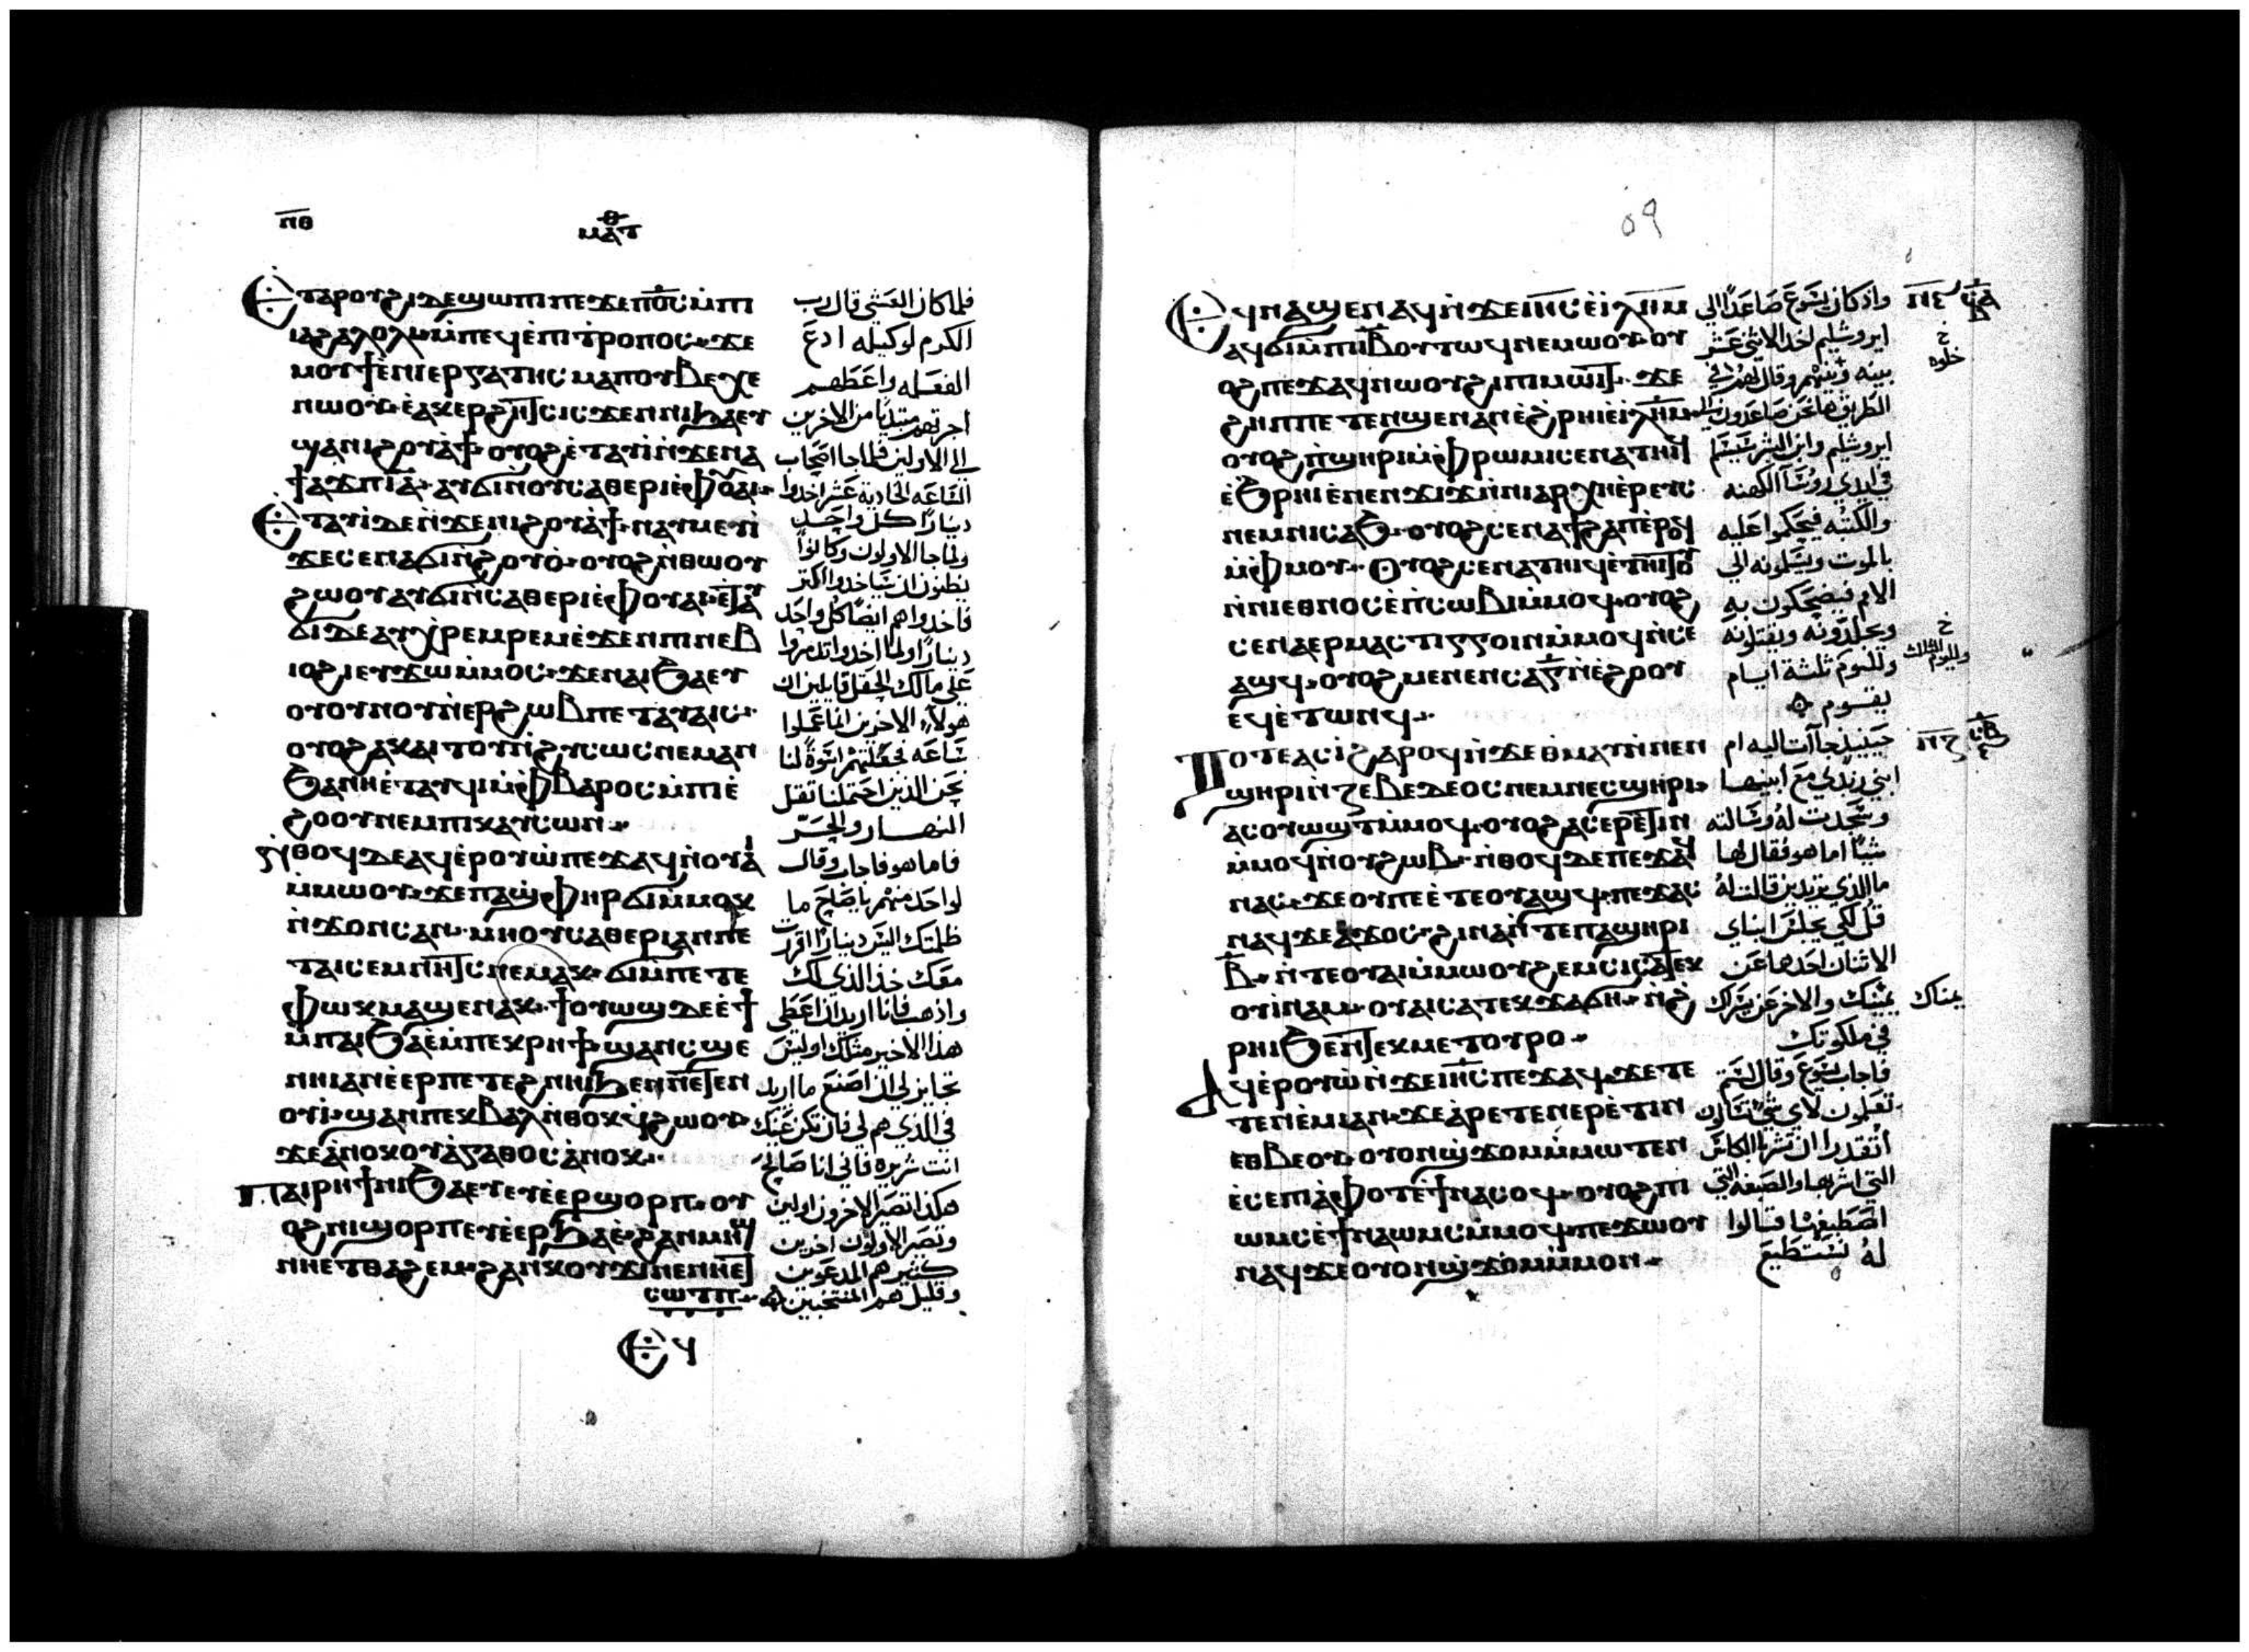 ⲡⲑ
ⲙⲁⲧ
Ⲉⲧⲁⲣⲟⲩϩⲓ ⲇⲉ ϣⲱⲡⲓ ⲡⲉϫⲉ ⲡϭⲥ ⲙ̇ⲡⲓ
ⲓⲁϩⲁⲗⲟⲗⲓ ⲙ̇ⲡⲉϥⲉ̇ⲡⲓⲧⲣⲟⲡⲟⲥ ϫⲉ
ⲙⲟⲩϯ ⲉ̇ⲛⲓⲉⲣⲅⲁⲧⲏⲥ ⲙⲁ ⲡⲟⲩⲃⲉⲭⲉ
ⲛⲱⲟⲩ ⲉ̇ⲁⲕⲉⲣϩⲏⲧⲥ ⲓⲥϫⲉⲛ ⲛⲓϧⲁⲉⲩ
ϣⲁ ⲛⲓϩⲟⲩⲁϯ ⲟⲩⲟϩ ⲉ̇ⲧⲁⲩⲓ̇ ⲛ̇ϫⲉ ⲛⲁ
ϯⲁϫⲡ ⲓ̅ⲁ̅ ⲁⲩϭⲓ ⲛ̇ⲟⲩⲥⲁⲑⲉⲣⲓ ⲉ̇ⲫⲟⲩⲁⲓ
Ⲉⲧⲁⲩⲓ̇ ⲇⲉ ⲛ̇ϫⲉ ⲛⲓϩⲟⲩⲁϯ ⲛⲁⲩⲙⲉⲩⲓ̇
ϫⲉ ⲥⲉⲛⲁϭⲓ ⲛ̇ϩⲟⲩⲟ̇ ⲟⲩⲟϩ ⲛ̇ⲑⲱⲟⲩ
ϩⲱⲟⲩ ⲁⲩϭⲓ ⲛ̇ⲥⲁⲑⲉⲣⲓ ⲉ̇ⲫⲟⲩⲁⲓ ⲉ̇ⲧⲁⲩ
ϭⲓ ⲇⲉ ⲁⲩⲭⲣⲉⲙⲣⲉⲙ ⲉ̇ϫⲉⲛ ⲡⲓⲛⲉⲃ
ⲓⲟϩⲓ ⲉⲩϫⲱ ⲙ̇ⲙⲟⲥ ϫⲉ ⲛⲁⲓϧⲁⲉⲩ
ⲟⲩⲟⲩⲛⲟⲩ ⲡⲉ̇ⲣϩⲱⲃ ⲡⲉⲧⲁⲩⲁⲓϥ
ⲟⲩⲟϩ ⲁⲕⲁⲓⲧⲟⲩ ⲛ̇ϩⲩⲥⲟⲥ ⲛⲉⲙⲁⲛ
ϧⲁ ⲛⲏ ⲉ̇ⲧⲁⲩϥⲓ ⲙ̇ⲫⲃⲁⲣⲟⲥ ⲙ̇ⲡⲓⲉ̇
ϩⲟⲟⲩ ⲛⲉⲙ ⲡⲓⲕⲁⲩⲥⲱⲛ
ⲛⲑⲟϥ ⲇⲉ ⲁϥⲉ̇ⲣⲟⲩⲱ̇ ⲡⲉϫⲁϥ ⲛ̇ⲟⲩⲁⲓ
ⲙ̇ⲙⲱⲟⲩ ϫⲉ ⲡⲁϣ̇ⲫⲏⲣ ϭⲓ ⲙ̇ⲙⲟⲕ
ⲛ̇ϫⲟⲛⲥ ⲁⲛ ⲙⲏ ⲟⲩⲥⲁⲑⲉⲣⲓ ⲁⲛ ⲡⲉ
ⲧⲁⲓⲥⲉⲙⲛⲏⲧⲥ ⲛⲉⲙⲁⲕ ϭⲓ ⲙ̇ⲡⲉⲧⲉ
ⲫⲱⲕ ⲙⲁϣⲉⲛⲁⲕ ϯⲟⲩⲱϣ ⲇⲉ ⲉ̇ϯ
ⲙ̇ⲡⲁⲓϧⲁⲉ̇ ⲙ̇ⲡⲉⲕⲣⲏϯ ϣⲁⲛ ⲥϣⲉ
ⲛⲏⲓ ⲁⲛ ⲉ̇ⲉⲣ ⲡⲉⲧⲉϩⲛⲏⲓ ϧⲉⲛ ⲛⲉⲧⲉⲛ
ⲟⲩⲓ̇ ϣⲁⲛ ⲡⲉⲕⲃⲁⲗ ⲛ̇ⲑⲟⲕ ϥ̇ϩⲱⲟⲩ
ϫⲉ ⲁ̇ⲛⲟⲕ ⲟⲩⲁ̇ⲅⲁⲑⲟⲥ ⲁ̇ⲛⲟⲕ
Ⲡⲁⲓⲣⲏϯ ⲛⲓϧⲁⲉⲩ ⲉⲩⲉ̇ⲉⲣϣⲟⲣⲡ ⲟⲩ
ⲟϩ ⲛⲓϣⲟⲣⲡ ⲉⲩⲉ̇ⲉⲣϧⲁⲉ̇ ϩⲁⲛⲙⲏϣ
ⲛⲏⲉⲧⲑⲁϩⲉⲙ ϩⲁⲛⲕⲟⲩϫⲓ ⲡⲉ ⲛⲏⲉⲧ
ⲥⲱⲧⲡ
فلما كان العشي قال رب
الكرم لوكيله ادع
الفعله واعطهم
اجرتهم مبتديا من الاخرين
الى الاولين فلما جا اصحاب
الساعه الحادية عشر اخدوا
دينارا كل واحد
ولما جا الاولون وكانوا
يظنون ان سياخدوا اكتر
فاخدوا هم ايضا كل واحد
دينارا ولما اخدوا تدمروا
على مالك الحقل قايلين ان
هولاء الاخرين انما عملوا
ساعه فجعلتهم اسوة لنا
نحن الذين احتملنا تقل
النهار والحر
فاما هو فاجاب وقال
لواحد منهم ياصاحب ما
ظلمتك اليس دينارا قررت
معك خذ الذي لك
واذهب فانا اريد ان اعطي
هذا الاخير مثلك اوليس
بجايز لي ان اصنع ما اريد
في الذي هم لي فان تكن عينك
انت شريره فاني انا صالح
هكذا تصير الاخرون اولين
وتصير الاولون اخرين
كثير هم المدعوين
وقليل هم المنتخبين
٥٩
Ⲉϥⲛⲁϣⲉⲛⲁϥ ⲛ̇ϫⲉ ⲓⲏⲥ ⲉ̇ⲓⲗⲏⲙ
ⲁϥϭⲓ ⲙ̇ⲡⲓⲓⲃ ⲟⲩⲧⲱϥ ⲛⲉⲙⲱⲟⲩ ⲟⲩ
ⲟϩ ⲡⲉϫⲁϥ ⲛⲱⲟⲩ ϩⲓ ⲡⲓⲙⲱⲓⲧ ϫⲉ
ϩⲏⲡⲡⲉ ⲧⲉⲛϣⲉⲛⲁⲛ ⲉ̇ϩⲣⲏⲓ ⲉ̇ⲓⲗⲏⲙ
ⲟⲩⲟϩ ⲡϣⲏⲣⲓ ⲙ̇ⲫⲣⲱⲙⲓ ⲥⲉⲛⲁⲧⲏⲓϥ
ⲉ̇ϧⲣⲏⲓ ⲉ̇ⲛⲉⲛϫⲓϫ ⲛ̇ⲛⲓⲁⲣⲭⲏⲉ̇ⲣⲉⲩⲥ
ⲛⲉⲙ ⲛⲓⲥⲁϧ ⲟⲩⲟϩ ⲥⲉⲛⲁϯϩⲁⲡ ⲉ̇ⲣⲟϥ
ⲙ̇ⲫⲙⲟⲩ Ⲟⲩⲟϩ ⲥⲉⲛⲁⲧⲏⲓϥ ⲉ̇ⲧⲟⲧⲟⲩ
ⲛ̇ⲛⲓⲉⲑⲛⲟⲥ ⲉ̇ⲡ̇ⲥⲱⲃⲓ ⲙ̇ⲙⲟϥ ⲟⲩⲟϩ
ⲥⲉⲛⲁⲉⲣⲙⲁⲥⲧⲓⲅⲅⲟⲓⲛ ⲙ̇ⲙⲟϥ ⲛ̇ⲥⲉ
ⲁϣϥ ⲟⲩⲟϩ ⲙⲉⲛⲉⲛⲥⲁ ⲅ̅ ⲛ̇ⲉ̇ϩⲟⲟⲩ
ⲉϥⲉ̇ⲧⲱⲛϥ
Ⲧⲟⲧⲉ ⲁⲥⲓ̇ ϩⲁⲣⲟϥ ⲛ̇ϫⲉ ⲑⲙⲁⲩ ⲛ̇ⲛⲉⲛ
ϣⲏⲣⲓ ⲛ̇ⲍⲉⲃⲉⲇⲉⲟⲥ ⲛⲉⲙ ⲛⲉⲥϣⲏⲣⲓ
ⲁⲥⲟⲩⲱϣⲧ ⲙ̇ⲙⲟϥ ⲟⲩⲟϩ ⲁⲥⲉⲣⲉ̇ⲧⲓⲛ
ⲙ̇ⲙⲟϥ ⲛ̇ⲟⲩϩⲱⲃ ⲛ̇ⲑⲟϥ ⲇⲉ ⲡⲉϫⲁϥ
ⲛⲁⲥ ϫⲉ ⲟⲩ ⲡⲉ ⲉ̇ⲧⲉⲟⲩⲁϣϥ ⲡⲉϫⲁⲥ
ⲛⲁϥ ϫⲉ ⲁ̇ϫⲟⲥ ϩⲓⲛⲁ ⲛ̇ⲧⲉ ⲡⲁϣⲏⲣⲓ
ⲃ̅ ⲛ̇ⲧⲉ ⲟⲩⲁⲓ ⲙ̇ⲙⲱⲟⲩ ϩⲉⲙⲥⲓ ⲥⲁⲧⲉⲕ
ⲟⲩⲓ̇ⲛⲁⲙ ⲟⲩⲁⲓ ⲥⲁⲧⲉⲕϫⲁϭⲏ ⲛ̇ϩ̇
ⲣⲏⲓ ϧⲉⲛ ⲧⲉⲕⲙⲉⲧⲟⲩⲣⲟ
Ⲁϥⲉ̇ⲣⲟⲩⲱ̇ ⲛ̇ϫⲉ ⲓⲏⲥ ⲡⲉϫⲁϥ ϫⲉ ⲧⲉ
ⲧⲉⲛⲉ̇ⲙⲓ ⲁⲛ ϫⲉ ⲁ̇ⲣⲉⲧⲉⲛⲉⲣⲉ̇ⲧⲓⲛ
ⲉⲑⲃⲉ ⲟⲩ ⲟⲩⲟⲛ ϣ̇ϫⲟⲙ ⲙ̇ⲙⲱⲧⲉⲛ
ⲉ̇ⲥⲉ ⲡⲓⲁ̇ⲫⲟⲧ ⲉ̇ϯⲛⲁⲥⲟϥ ⲟⲩⲟϩ ⲡⲓ
ⲱⲙⲥ ⲉ̇ϯⲛⲁⲱⲙⲥ ⲙ̇ⲙⲟϥ ⲡⲉϫⲱⲟⲩ
ⲛⲁϥ ϫⲉ ⲟⲩⲟⲛ ϣ̇ϫⲟⲙ ⲙ̇ⲙⲟⲛ
واذ كان يسوع صاعدا الى
ايروشليم اخد الاثنى عشر
بينه وبينهم وقال لهم في
الطريق ها نحن صاعدون الى
ايروشليم وابن البشر يسلم
في ايدي روسا الكهنه
والكتبه فيحكموا عليه
بالموت ويسلمونه الى
الامم فيضحكون به
ويجلدونه ويقتلونه
ولليوم ثلثة ايام
يقوم
حينيذ جآت اليه ام
ابني زبدي مع ابنيها
وسجدت له وسالته
شيا اما هو فقال لها
ما الذي تريدين قالت له
قل لكي يجلس ابناي
الاثنان احدها عن
يمينك والاخر عن يسرك
في ملكوتك
فاجاب يسوع وقال لستم
تعلمون لاي شي تسالون
أتقدران تشربا الكاس
التي اشربها والصبغه التي
اصطبغها قالوا
له نستطيع
خ
خلوه
خ
ولليوم الثالث
يمناك